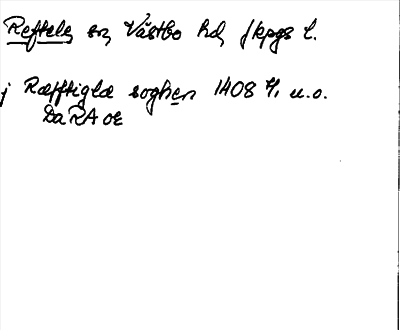 Reftele sn Västbo hd Jkpgs l.
j Ræfftiglæ soghen 1408 4/1 u.o.
DaRA OE